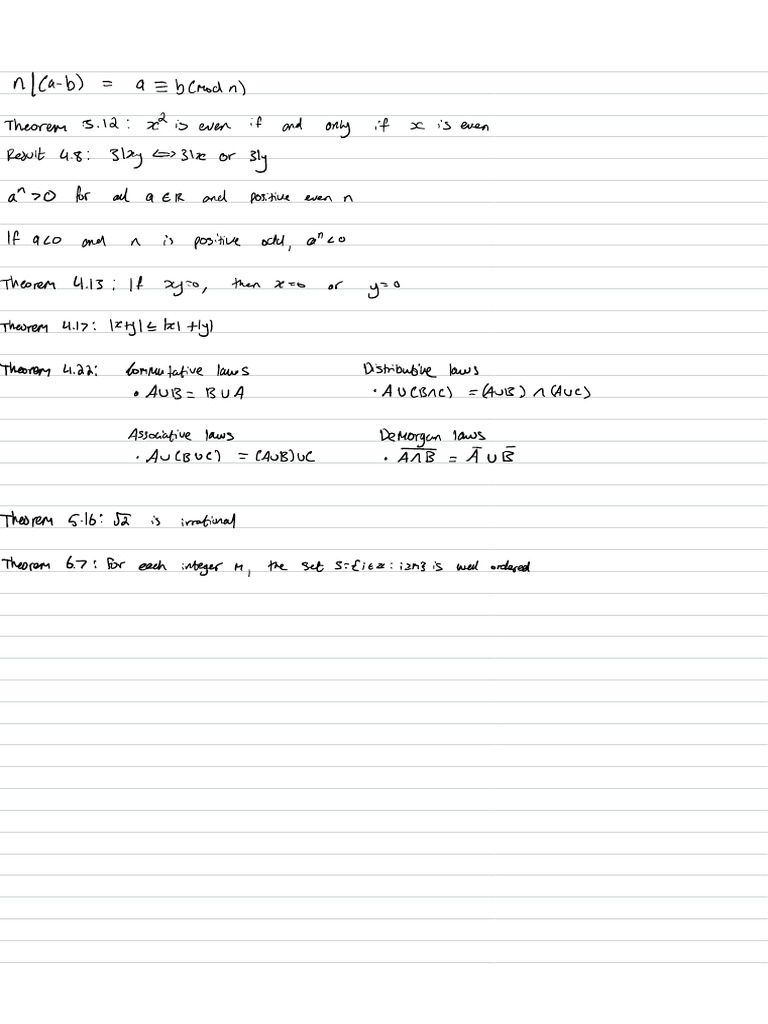 n|(a-b) = a ≡ b(mod n)
Theorem 3.12: x² is even if and only if x is even
Result 4.8: 3|xy ⟺ 3|x or 3|y
aⁿ>0 for all a∈R and positive even n
If a<0 and n is positive odd, aⁿ<0
Theorem 4.13: If xy=0, then x=0 or y=0
Theorem 4.17: |x+y| ≤ |x| + |y|
Theorem 4.22: Commutative laws Distributive laws
• A∪B = B∪A • A∪(B∩C) = (A∪B) ∩ (A∪C)
Associative laws DeMorgan laws
• A∪(B∪C) = (A∪B)∪C • A̅∩̅B̅ = A̅ ∪ B̅
Theorem 5.16: √2 is irrational
Theorem 6.7: For each integer M, the set S={i∈Z: i≥M} is well ordered